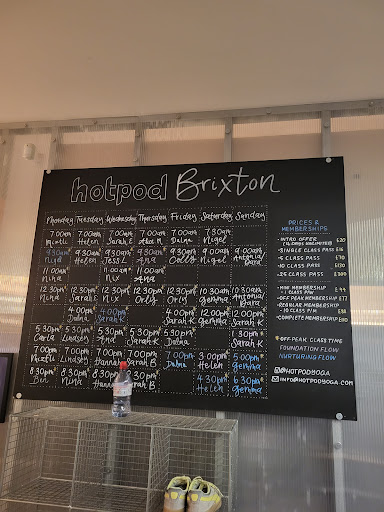 hotpod Brixton
Monday Tuesday Wednesday Thursday Friday Saturday Sunday
7.00am 7.00am 7.00am 7.00am 7.00am 7.30am
Helen Sarah E Dalna Nigel
9.30am 9.30am 9.30am 9.30am 9.30am 9.00am 9.00am
Nina Helen Jess L Ana Nigel Antonia/
11.00am 11.00am 11.00am
Nina Nix Ana
12.30pm 12.30pm 12.30pm 12.30pm 10.30am 10.30am
Nina Sarah E Nix Orly Orly Gemma Antonia/
4.00pm 4.00pm 4.00pm 12.00pm 12.00pm
Sarah K Sarah K Gemma Sarah K
5.30pm 5.30pm 5.30pm 5.30pm 5.30pm 1.30pm
Carla Lindsey And Sarah B Sarah K
7.00pm 7.00pm 7.00pm 7.00pm 7.00pm 3.00pm 5.00pm
Lindsey Hannah Sarah B Dalna Helen Gemma
8.30pm 8.30pm 8.30pm 8.30pm 4.30pm 6.30pm
Ben Nina Hannah Sarah B Helen Gemma
PRICES &
MEMBERSHIPS
- INTRO OFFER £20
- SINGLE CLASS PASS £16
- 5 CLASS PASS £70
- 10 CLASS PASS £130
- 25 CLASS PASS £300
- MINI MEMBERSHIP £44
- 1 CLASS P/W
- OFF PEAK MEMBERSHIP £77
- REGULAR MEMBERSHIP
- COMPLETE MEMBERSHIP
* OFF PEAK CLASS TIME
FOUNDATION FLOW
NURTURING FLOW
@HOTPODYOGA
INFO@HOTPODYOGA.COM